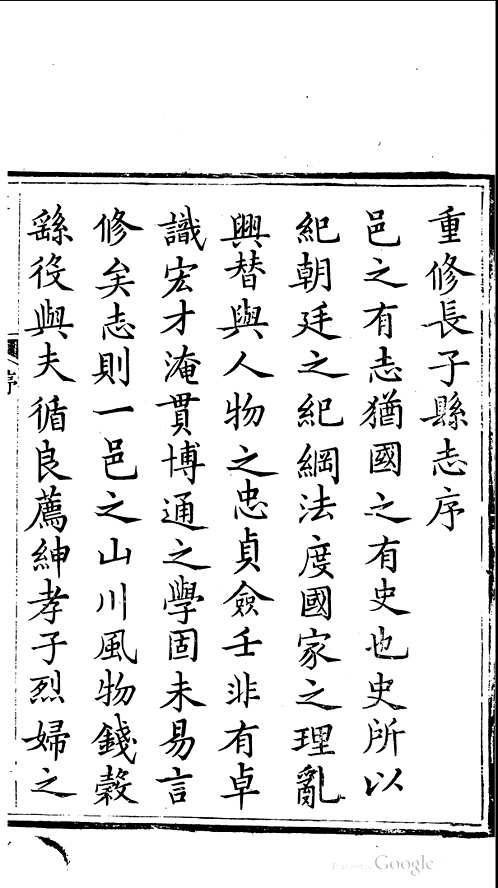 重修長子縣志序
邑之有志猶國之有史也史所以
紀朝廷之紀綱法度國家之理亂
興替與人物之忠貞僉壬非有卓
識宏才淹貫博通之學固未易言
修矣志則一邑之山川風物錢穀
繇役與夫循良薦紳孝子烈婦之
序
Google